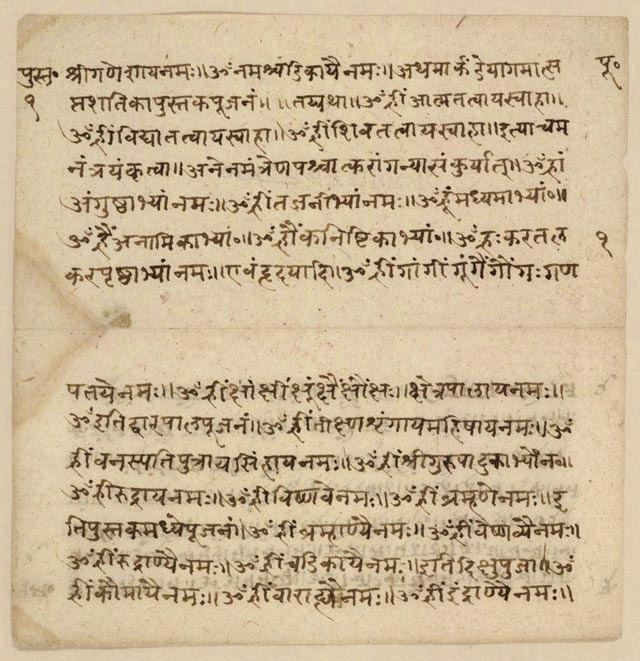 पुस्त॰ श्रीगणेशायनमः॥ॐनमश्चंडिकायैनमः॥अथमार्कंडेयागमात्स पू॰
१ प्तशतिकापुस्तकपूजनं॥ ॥तद्यथा॥ॐह्रींआत्मतत्वायस्वाहा॥
ॐह्रींविद्यातत्वायस्वाहा॥ॐह्रींशिवतत्वायस्वाहा॥इत्याचम
नंत्रयंकृत्वा॥अनेनमंत्रेणपश्चात्करांगन्यासंकुर्यात्॥ॐह्रां
अंगुष्ठाभ्यांनमः॥ॐह्रींतर्जनीभ्यांनमः॥ॐह्रूंमध्यमाभ्यां॰॥
ॐह्रैंअनामिकाभ्यां॰॥ॐह्रौंकनिष्टिकाभ्यां॰॥ॐह्रःकरतल १
करपृष्ठाभ्यांनमः॥एवंहृदयादि॥ॐह्रींगांगींगूंगैंगौंगःगण
पतयेनमः॥ॐह्रींक्षांक्षींक्षूंक्षैंक्षौंक्षः॥क्षेत्रपालायनमः॥
ॐइतिद्वारपालपूजनं॥ॐह्रींतीक्ष्णशृंगायमहिषायनमः॥ॐ
ह्रींवनस्पतिपुत्रायसिंहायनमः॥ॐह्रींश्रीगुरुपादुकाभ्योंनमः॥
ॐह्रींरुद्रायनमः॥ॐह्रींविष्णवेनमः॥ॐह्रींब्रम्हणेनमः॥इ
तिपुस्तकमध्येपूजनं॥ॐह्रींब्रम्हाण्यैनमः॥ॐह्रींवैष्णव्यैनमः॥
ॐह्रींरुद्राण्यैनमः॥ॐह्रींचंडिकायैनमः॥इतिदिक्षुपुजा॥ॐ
ह्रींकौमार्यैनमः॥ॐह्रींवाराह्यैनमः॥ॐह्रींइंद्राण्यैनमः॥